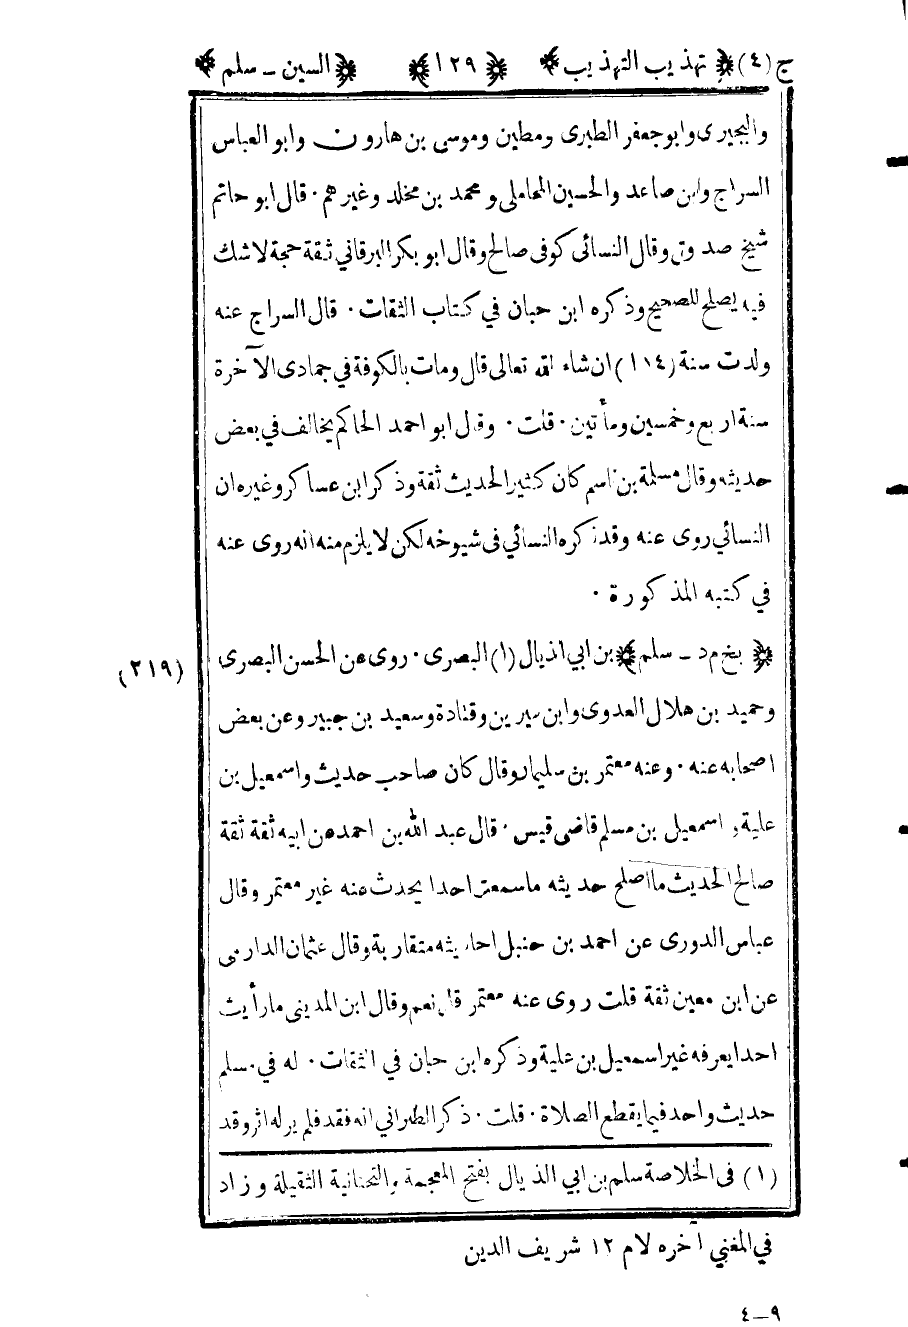 ج (٤) ﴿ تهذيب التهذيب ﴾ ﴿ ١٢٩ ﴾ ﴿ السين ـ سلم ﴾
والبجيرى وابو جعفر الطبرى ومطين وموسى بن هارون وابو العباس
السراج وابن صاعد والحسين المحاملى و محمد بن مخلد وغيرهم . قال ابو حاتم
شيخ صدوق وقال النسائى كوفى صالح وقال ابو بكر البرقاني ثقة حجة لا شك
فيه يصلح للصحيح وذكره ابن حبان في كتاب الثقات . قال السراج عنه
ولدت سنة (١١٤) ان شاء الله تعالى قال ومات بالكوفة في جمادى الآخرة
سنة اربع وخمسين ومأتين . قلت . وقال ابو احمد الحاكم يخالف في بعض
حديثه وقال مسلمة بن قاسم كان كثير الحديث ثقة وذكر ابن عساكر وغيره ان
النسائي روى عنه وقد ذكره النسائي فى شيوخه لكن لا يلزم منه انه روى عنه
في كتبه المذكورة .
﴿ بخ م د ـ سلم ﴾ بن ابي الذيال (١) البصرى . روى عن الحسن البصرى
(٢١٩)
وحميد بن هلال العدوى وابن سيرين وقتادة وسعيد بن جبير وعن بعض
اصحابه عنه . وعنه معتمر بن سليمان وقال كان صاحب حديث واسمعيل بن
علية و اسمعيل بن مسلم قاضى قيس . قال عبد الله بن احمد عن ابيه ثقة ثقة
صالح الحديث ما اصلح حديثه ما سمعت احدا يحدث عنه غير معتمر وقال
عباس الدورى عن احمد بن حنبل احاديثه متقاربة وقال عثمان الدارمى
عن ابن معين ثقة قلت روى عنه معتمر قال نعم وقال ابن المديني ما رأيت
احدا يعرفه غير اسمعيل بن علية وذكره ابن حبان في الثقات . له في . سلم
حديث واحد فيما يقطع الصلاة . قلت . ذكر الطبراني انه فقد فلم ير له اثر وقد
(١) فى الخلاصة سلم بن ابي الذيال بفتح المعجمة والتحتانية الثقيلة وزاد
في المغني آخره لام ١٢ شريف الدين
٤ـ٩